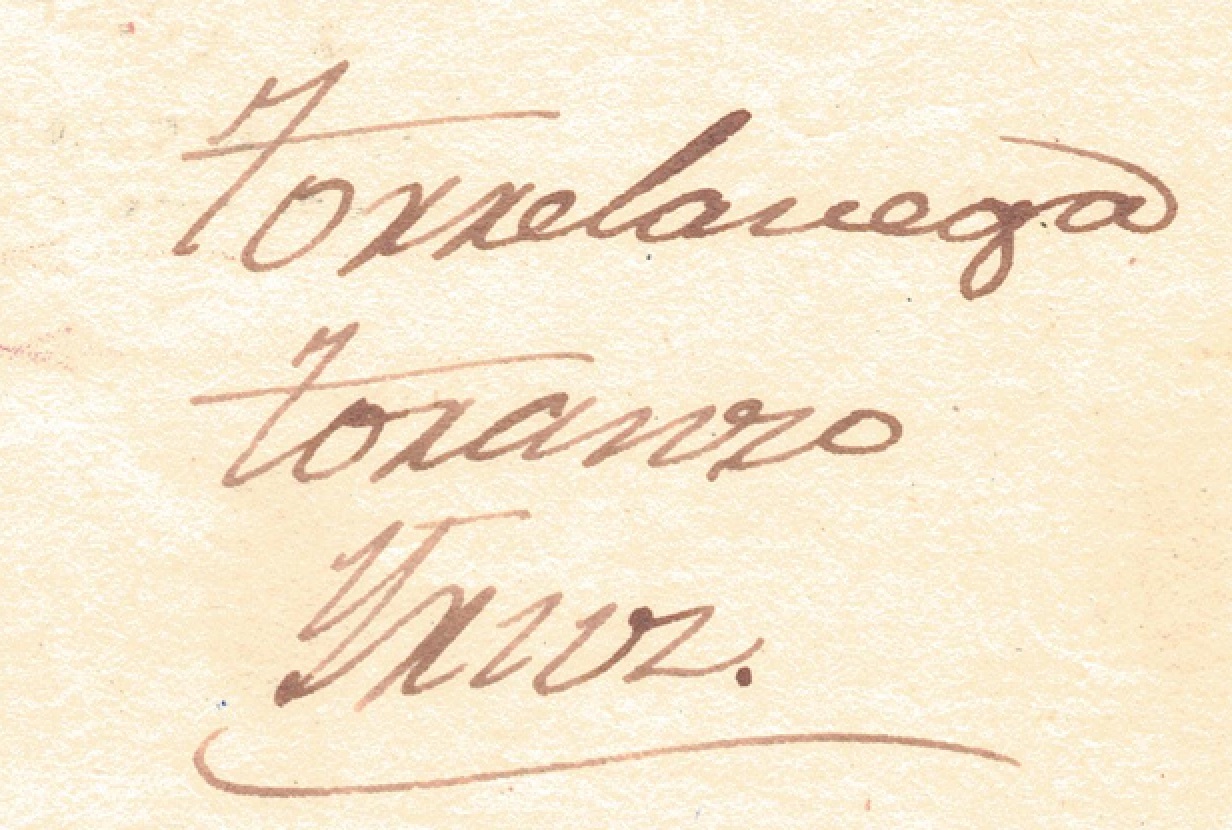 Torrelavega
Toranzo
Yruz.